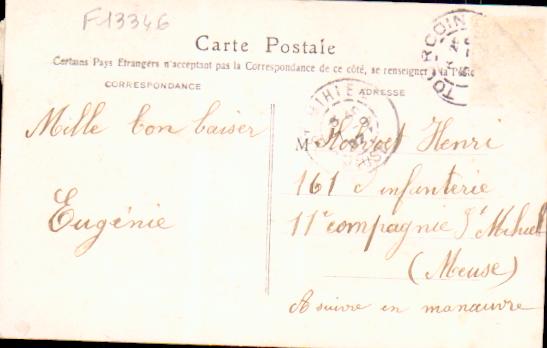 F13346
Carte Postale
Certains Pays Etrangers n'acceptant pas la Correspondance de ce côté, se renseigner à la Poste
CORRESPONDANCE
ADRESSE
TOURCOING
MIHIEL
Mille bon baiser
Eugénie
M Henri
161 d infanterie
11e compagnie St Mihiel
(Meuse)
A suivre en manœuvre